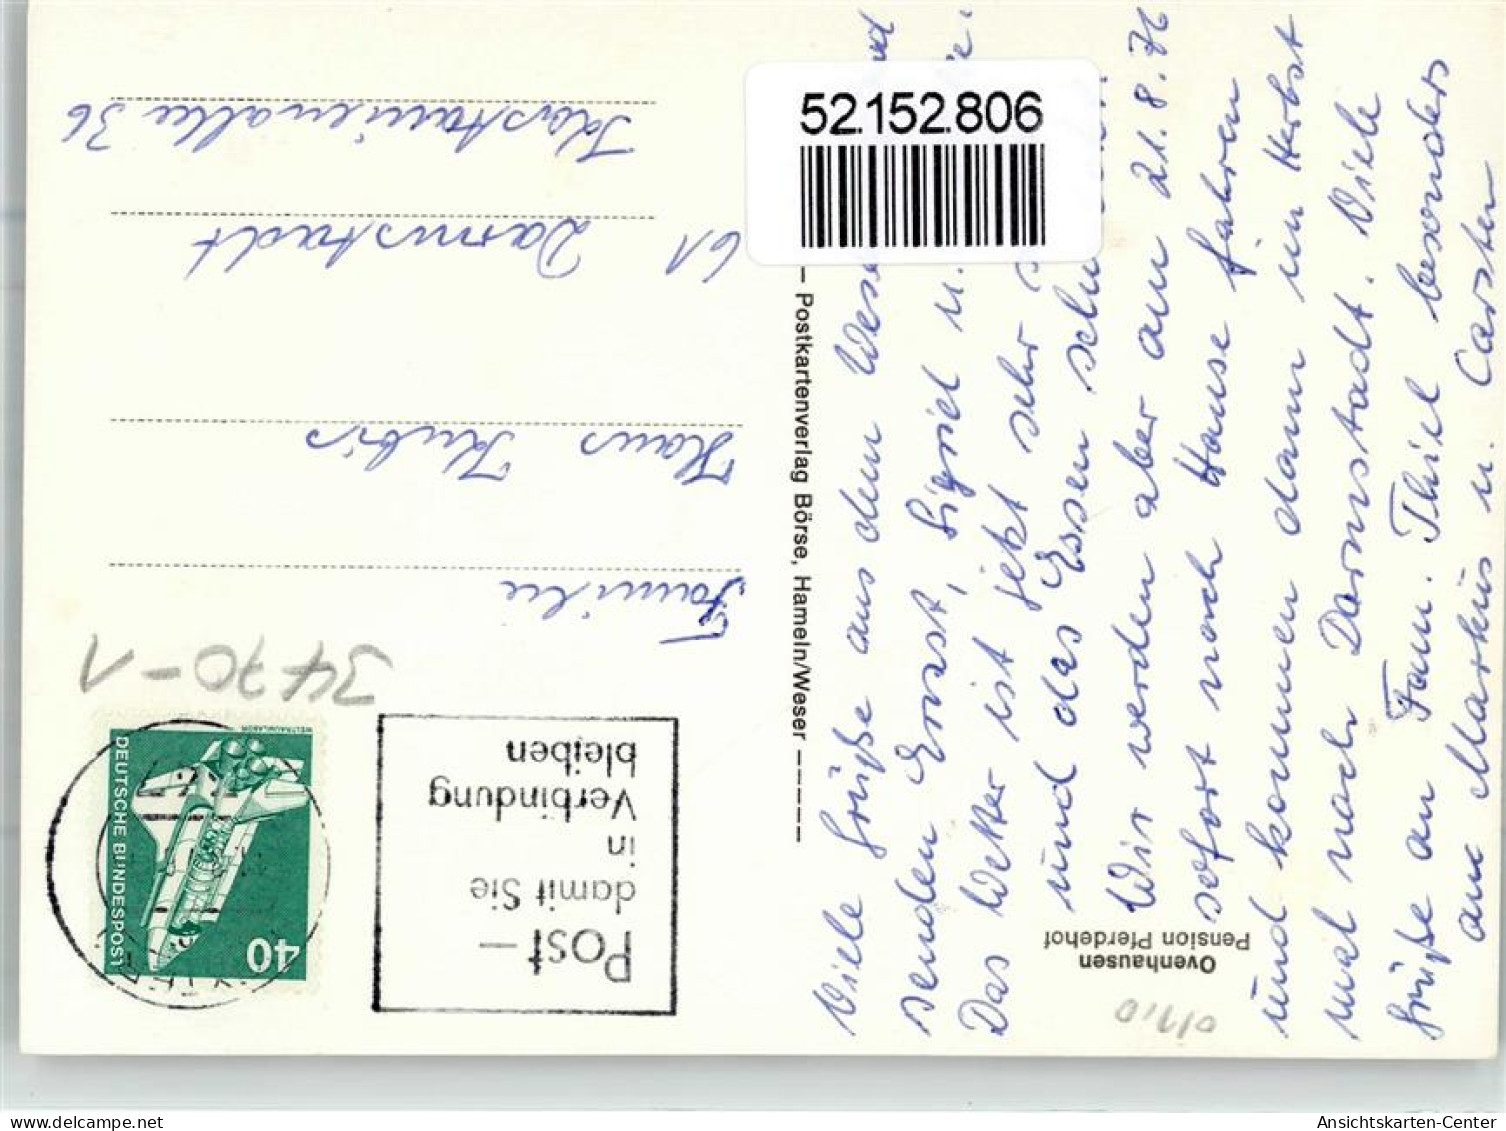 52.152.806
Ovenhausen
Pension Pferdehof
Viele Grüße aus dem
senden Ernst, Sigrid u.
Das Wetter ist jetzt sehr
und das Essen
Wir werden aber am 21.8.76
sofort nach Hause fahren
und kommen dann im Herbst
mal nach Darmstadt. Viele
Grüße an Fam. Thiel besonders
an Markus u. Carsten
– Postkartenverlag Börse, Hameln/Weser –––––
Post –
damit Sie
in
Verbindung
bleiben
40
DEUTSCHE BUNDESPOST
WELTRAUMLABOR
3470-1
Familie
Hans
61 Darmstadt
36
Ansichtskarten-Center.com
Ansichtskarten-Center